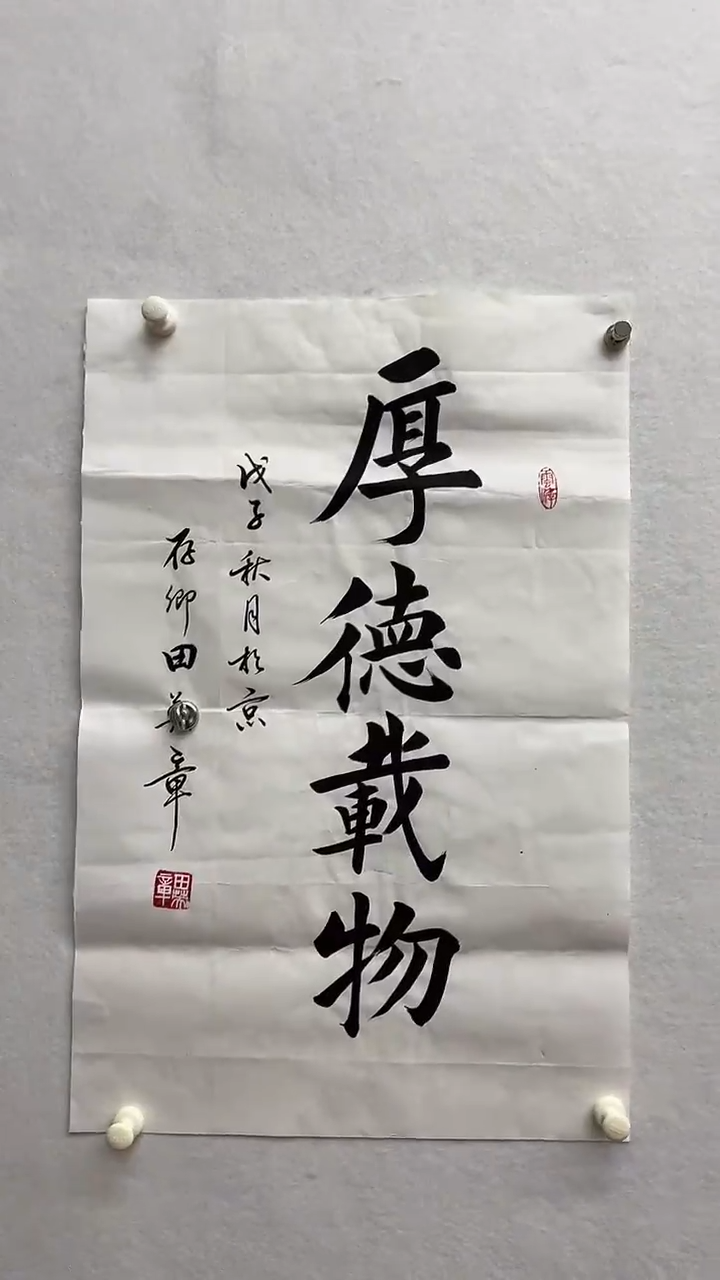 厚德載物
戊子秋月於京
存卿田英章
田英章